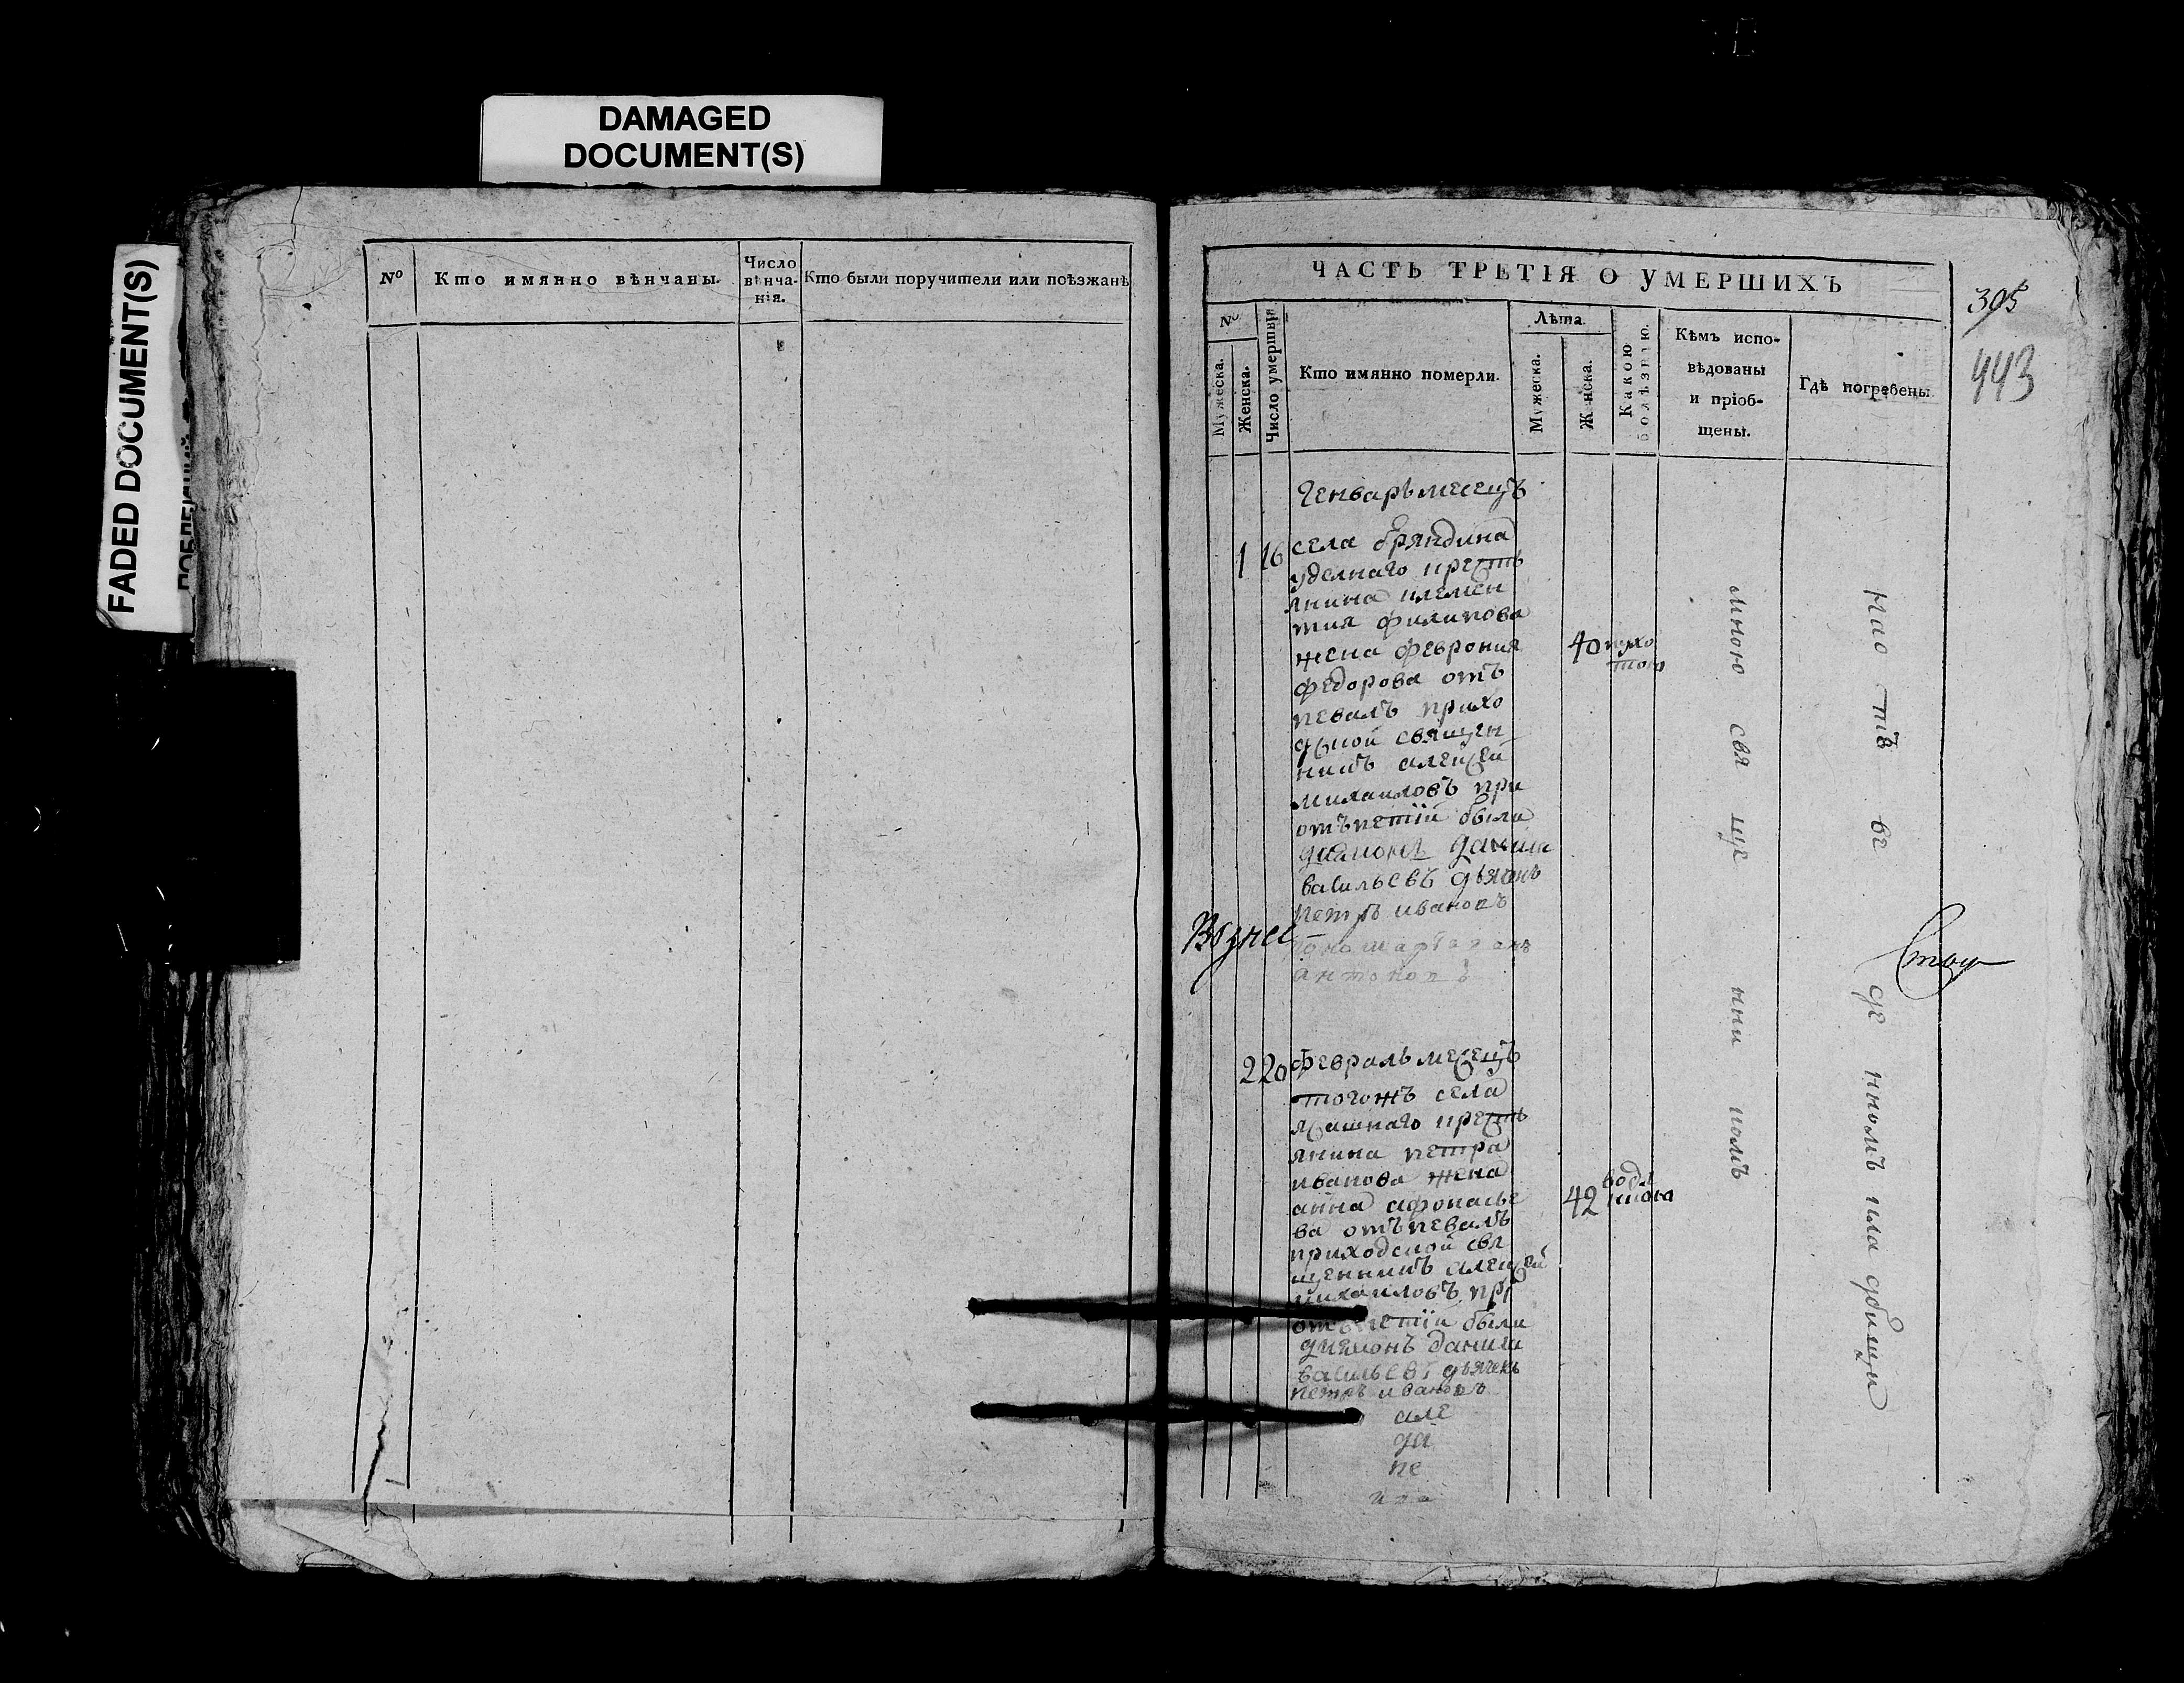 DAMAGED
DOCUMENT(S)
FADED DOCUMENT(S)
№
Кто имянно вѣнчаны.
Число
вѣнча-
нія.
Кто были поручители или поѣзжанѣ
ЧАСТЬ ТРЕТІЯ О УМЕРШИХЪ
305
443
№
Мужеска.
Женска.
Число умершихъ
Кто имянно померли.
Лѣта
Мужеска.
Женска.
Какою
болѣзнію.
Кѣмъ испо-
вѣдованы
и пріоб-
щены.
Гдѣ погребены.
Генварь месецъ
1 16 села бряндина
уделнаго крестъ
янина клемен
тия филипова
жена феврония 40
федорова отъ
певалъ прихо
дской священ
никъ алексей
михаиловъ при
отъпетіи были
диаконъ данила
васильевъ дьячекъ
петръ ивановъ
Вознес
пономарь
антоновъ
2 20 февраль месецъ
тогожъ села
ясашнаго крестъ
янина петра
иванова жена
анна афонасье 42 водя
ва отъпевалъ ною
приходской свя
щенникъ алексей
михаиловъ при
отъпетіи были
диаконъ данила
васильевъ дьячекъ
петръ ивановъ
але
да
пе
мною свя ще нни комъ
на о тъ ве де нномъ кла дбищи